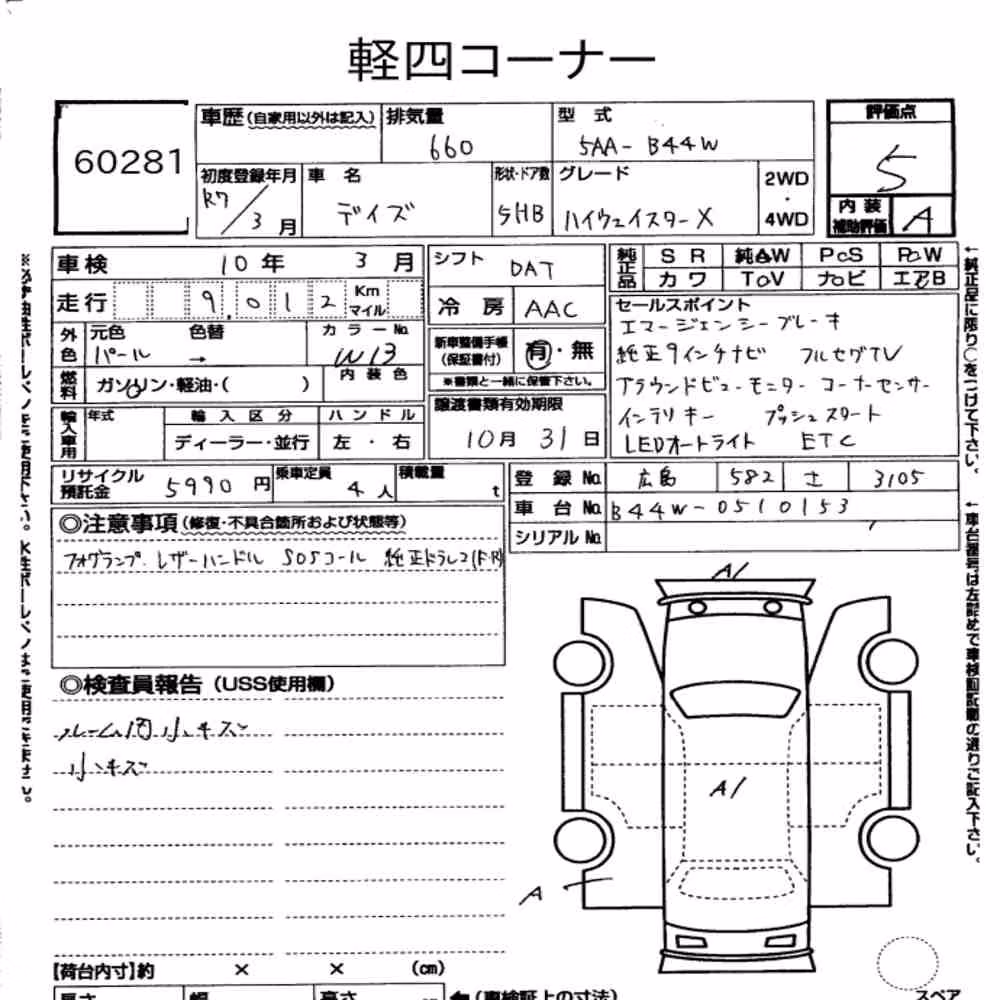 軽四コーナー
60281
車歴(自家用以外は記入) 排気量 660 型式 5AA-B44W
初度登録年月 R7/3月 車名 デイズ 形状・ドア数 5HB グレード ハイウェイスターX 2WD・4WD
評価点 5
内装補助評価 A
車検 10年 3月
走行 9,012 Km マイル
外色 元色 パール 色替 → カラーNo. W13
燃料 ガソリン・軽油・( ) 内装色
輸入車用 年式 輸入区分 ディーラー・並行 ハンドル 左・右
シフト DAT
冷房 AAC
新車整備手帳(保証書付) 有・無
※書類と一緒に保管下さい。
譲渡書類有効期限
10月 31日
純正品 SR 純AW PcS PcW
カワ ToV ナビ エアB
セールスポイント
エマージェンシーブレーキ
純正9インチナビ フルセグTV
アラウンドビューモニター コーナーセンサー
インテリキー プッシュスタート
LEDオートライト ETC
リサイクル預託金 5990円 乗車定員 4人 積載量 t
登録No. 広島 582 さ 3105
車台No. B44W-0510153
シリアルNo.
◎注意事項(修復・不具合箇所および状態等)
フォグランプ レザーハンドル SOSコール 純正ドラレコ(F・R)
◎検査員報告(USS使用欄)
ルーム内小キズ
小キズ
A1
A1
A
【荷台内寸】約 × × (cm)
長さ 幅 高さ (車検証上の寸法)
スペア
←純正品に限り○をつけて下さい。
←車台番号は左詰めで車検証記載の通りご記入下さい。